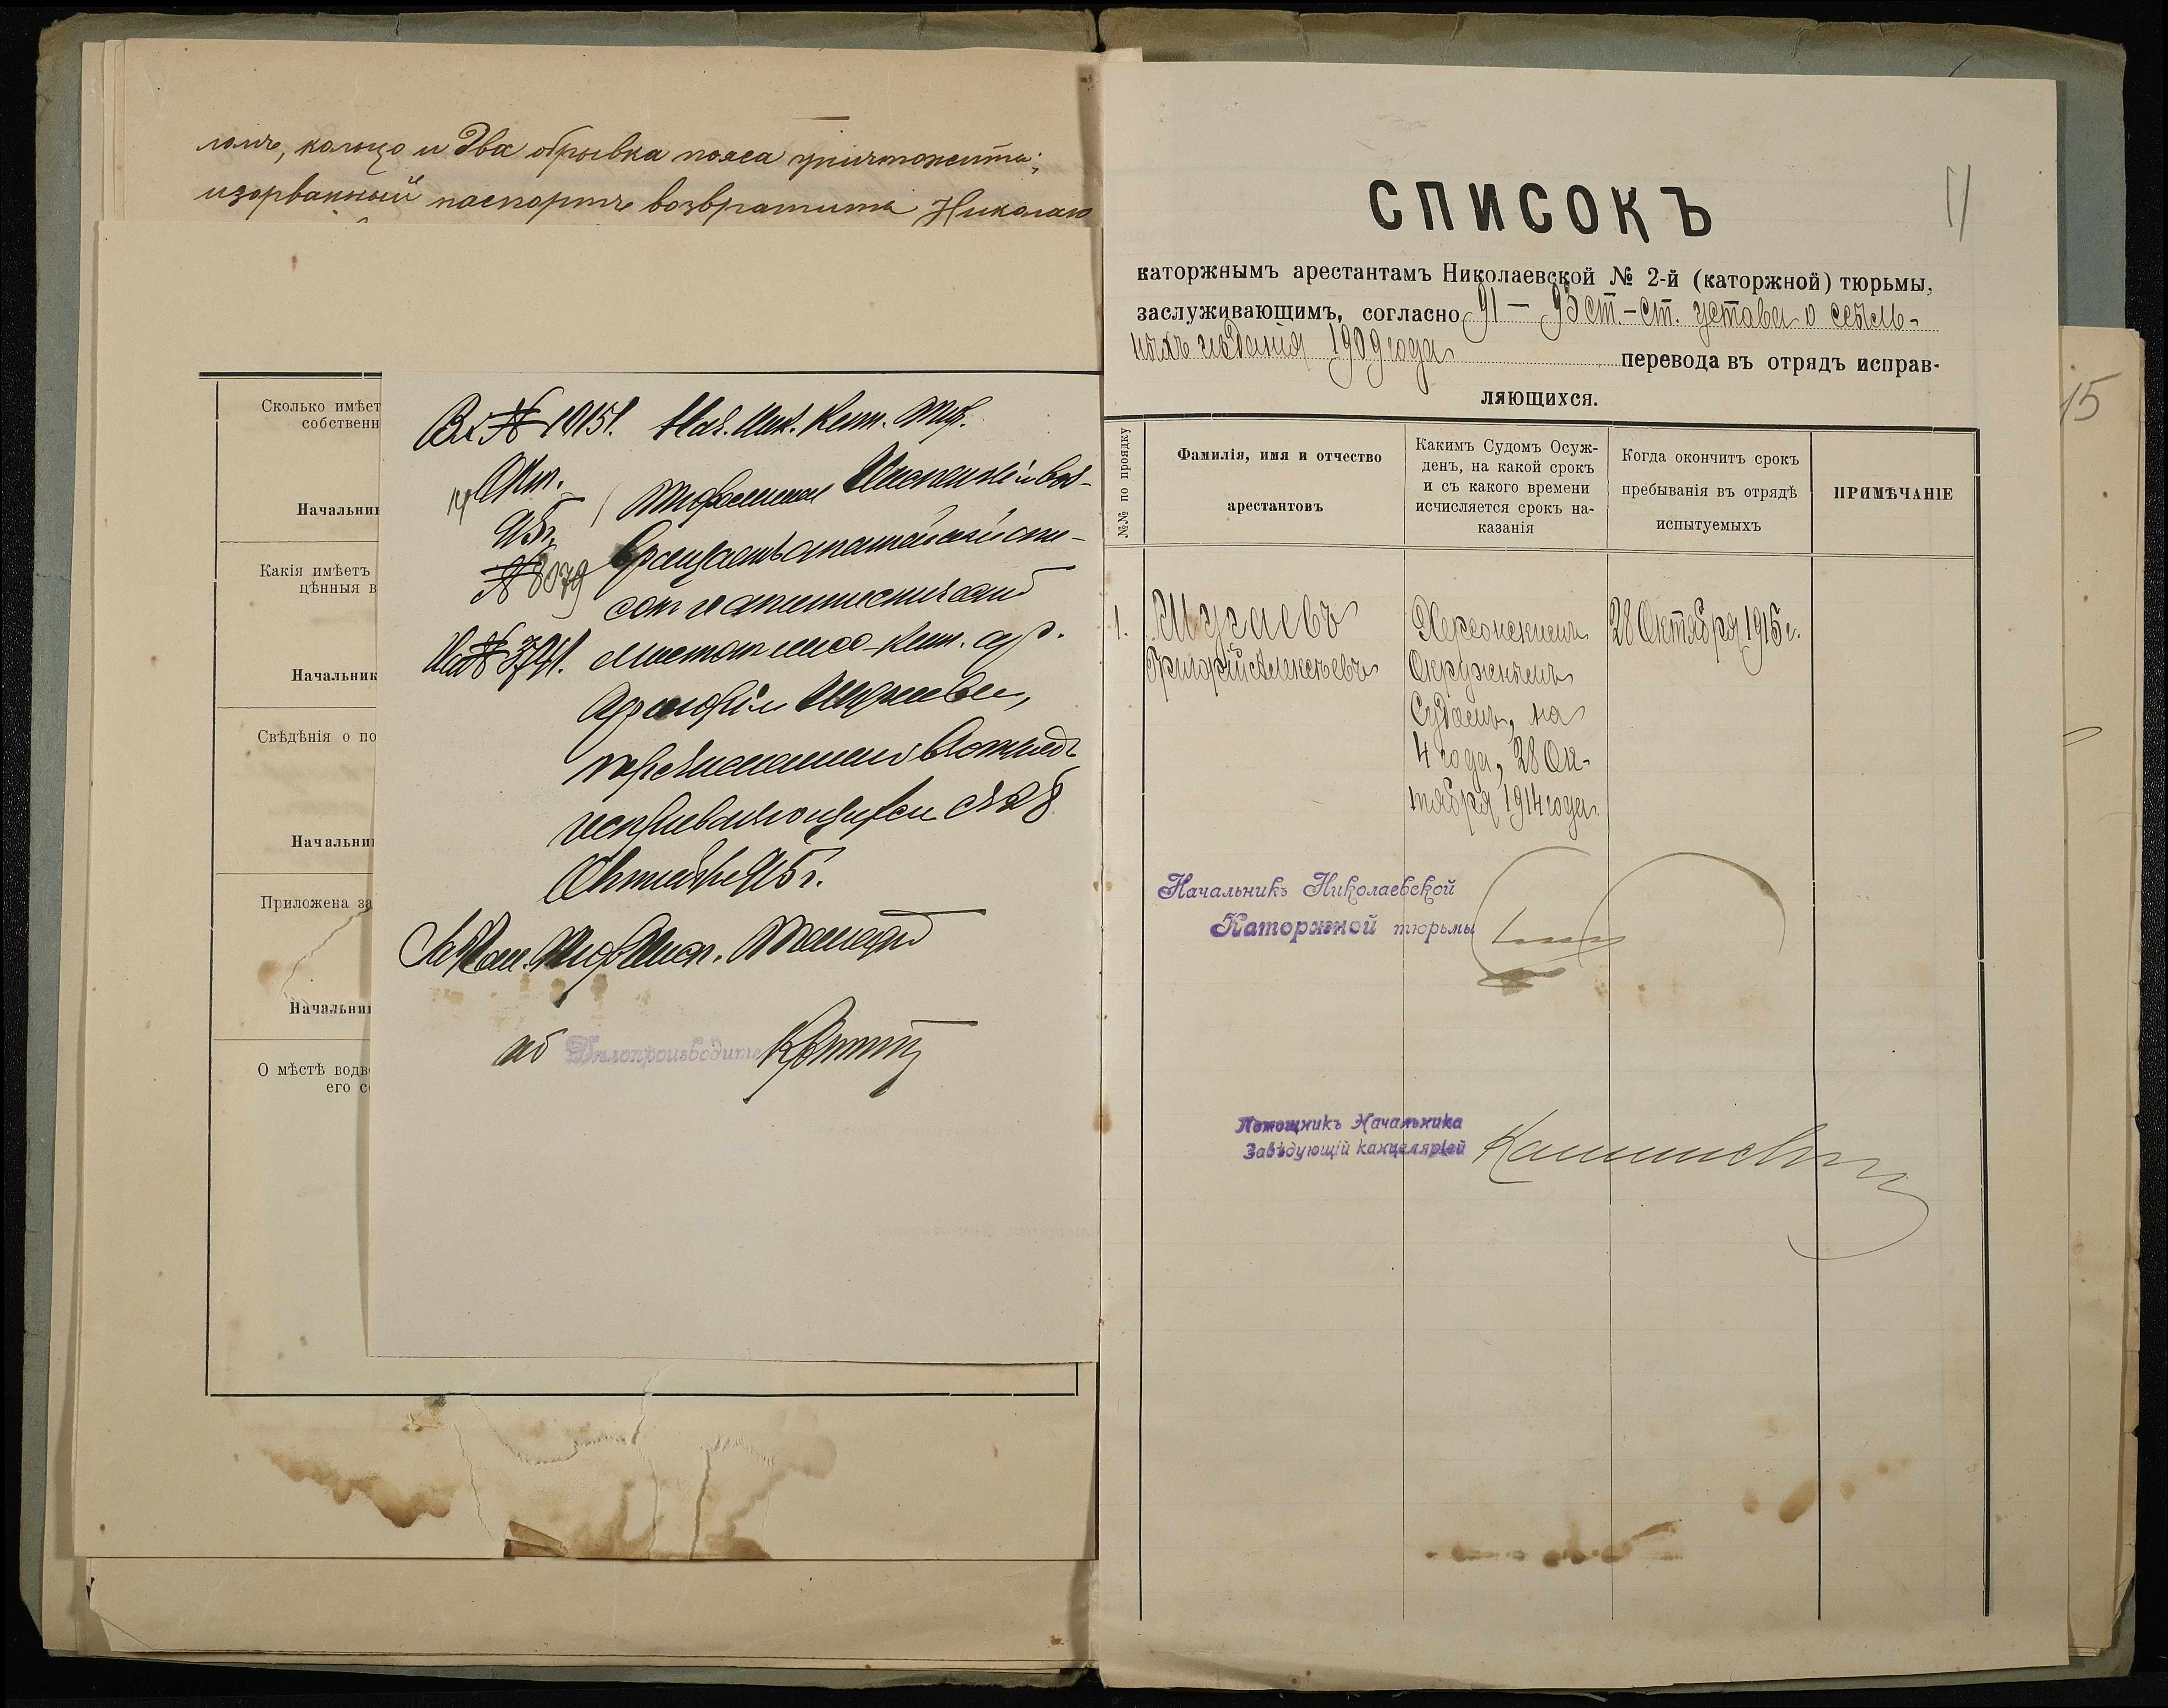 ломъ, кольцо и два обрывка пояса уничтожить;
изорванный паспортъ возвратить Николаю
Сколько имѣет
собственн
Начальник
Какія имѣетъ
цѣнныя в
Начальник
Свѣдѣнія о по
Начальни
Приложена за
Начальни
О мѣстѣ водв
его с
Вх № 10151. Нач. Ник. Кат. Тюр.
14 Окт.
915 г.
№ 8079
На № 3791.
Тюремная Инспекція воз-
вращаетъ статейный спи-
сокъ и
кат. ар.
Григорія Шугаева,
перечисленнаго въ отрядъ
исправляющихся съ 28
Октября 915 г.
За Пом. Тюр. Инсп.
За Дѣлопроизводите
СПИСОКЪ
11
каторжнымъ арестантамъ Николаевской № 2-й (каторжной) тюрьмы,
заслуживающимъ, согласно 91 — 95 ст.-ст. устава о ссыль-
ныхъ изданія 1909 года перевода въ отрядъ исправ-
ляющихся.
№№ по проядку
Фамилія, имя и отчество
арестантовъ
Какимъ Судомъ Осуж-
денъ, на какой срокъ
и съ какого времени
исчисляется срокъ на-
казанія
Когда окончитъ срокъ
пребыванія въ отрядѣ
испытуемыхъ
ПРИМѢЧАНІЕ
1. Шугаевъ
Григорій Алексѣевъ
Херсонскимъ
Окружнымъ
Судомъ, на
4 года, 28 Ок-
тября 1914 года
28 Октября 1915 г.
Начальникъ Николаевской
Каторжной тюрьмы
Помощникъ Начальника
Завѣдующій канцеляріей
15